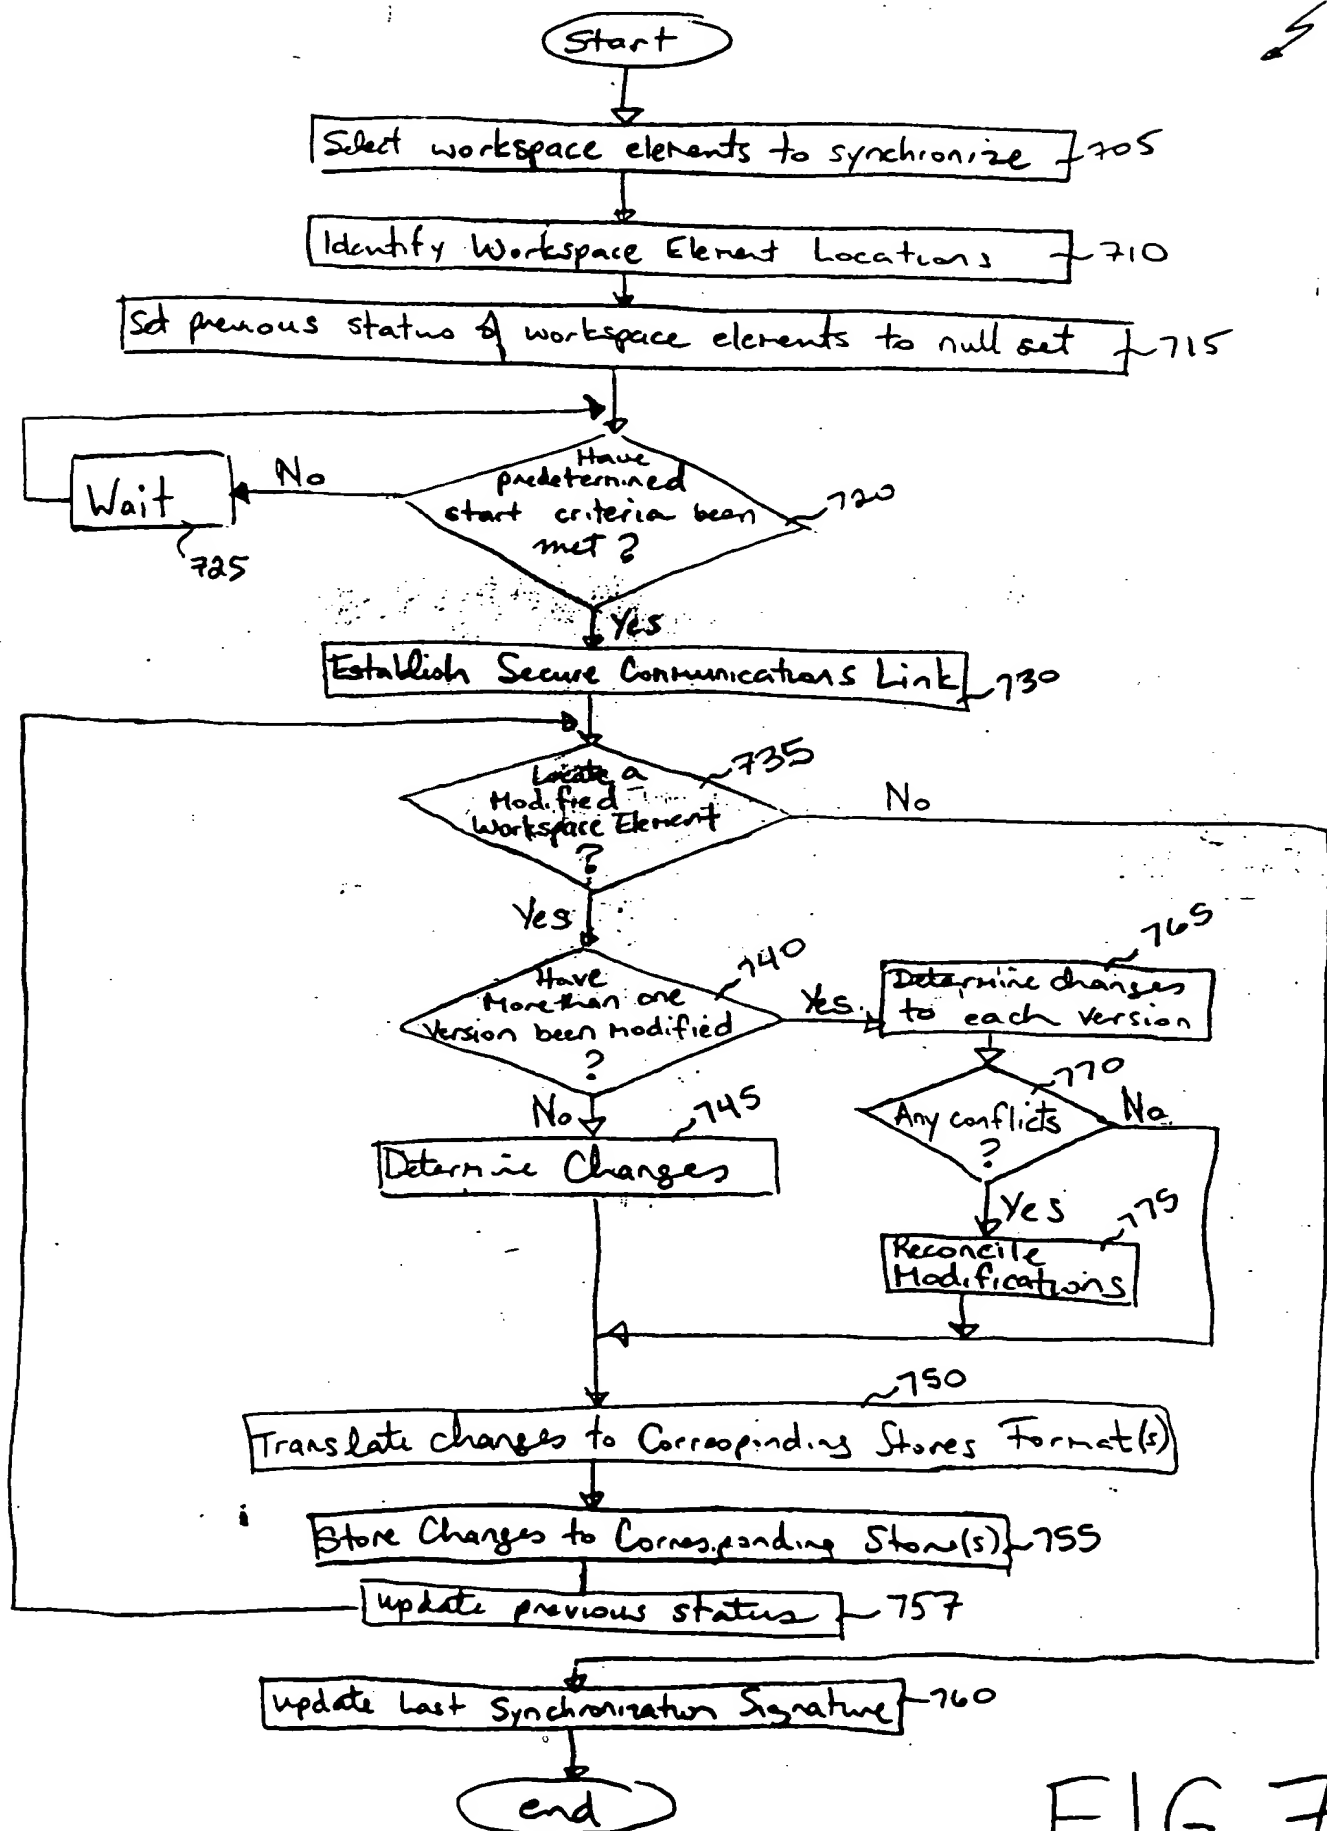 Start
Select workspace elements to synchronize 705
Identify Workspace Element Locations 710
Set previous status of workspace elements to null set 715
Have
predetermined
start criteria been
met ?
720
No
Wait
725
Yes
Establish Secure Communications Link 730
Locate a
Modified
Workspace Element
?
735
No
Yes
Have
More than one
version been modified
?
740
Yes
Determine changes
to each version
765
Any conflicts
?
770
No
No
Determine Changes
745
Yes
Reconcile
Modifications
775
750
Translate changes to Corresponding Stores Format(s)
Store Changes to Corresponding Store(s) 755
update previous status 757
update Last Synchronization Signature 760
end
FIG 7